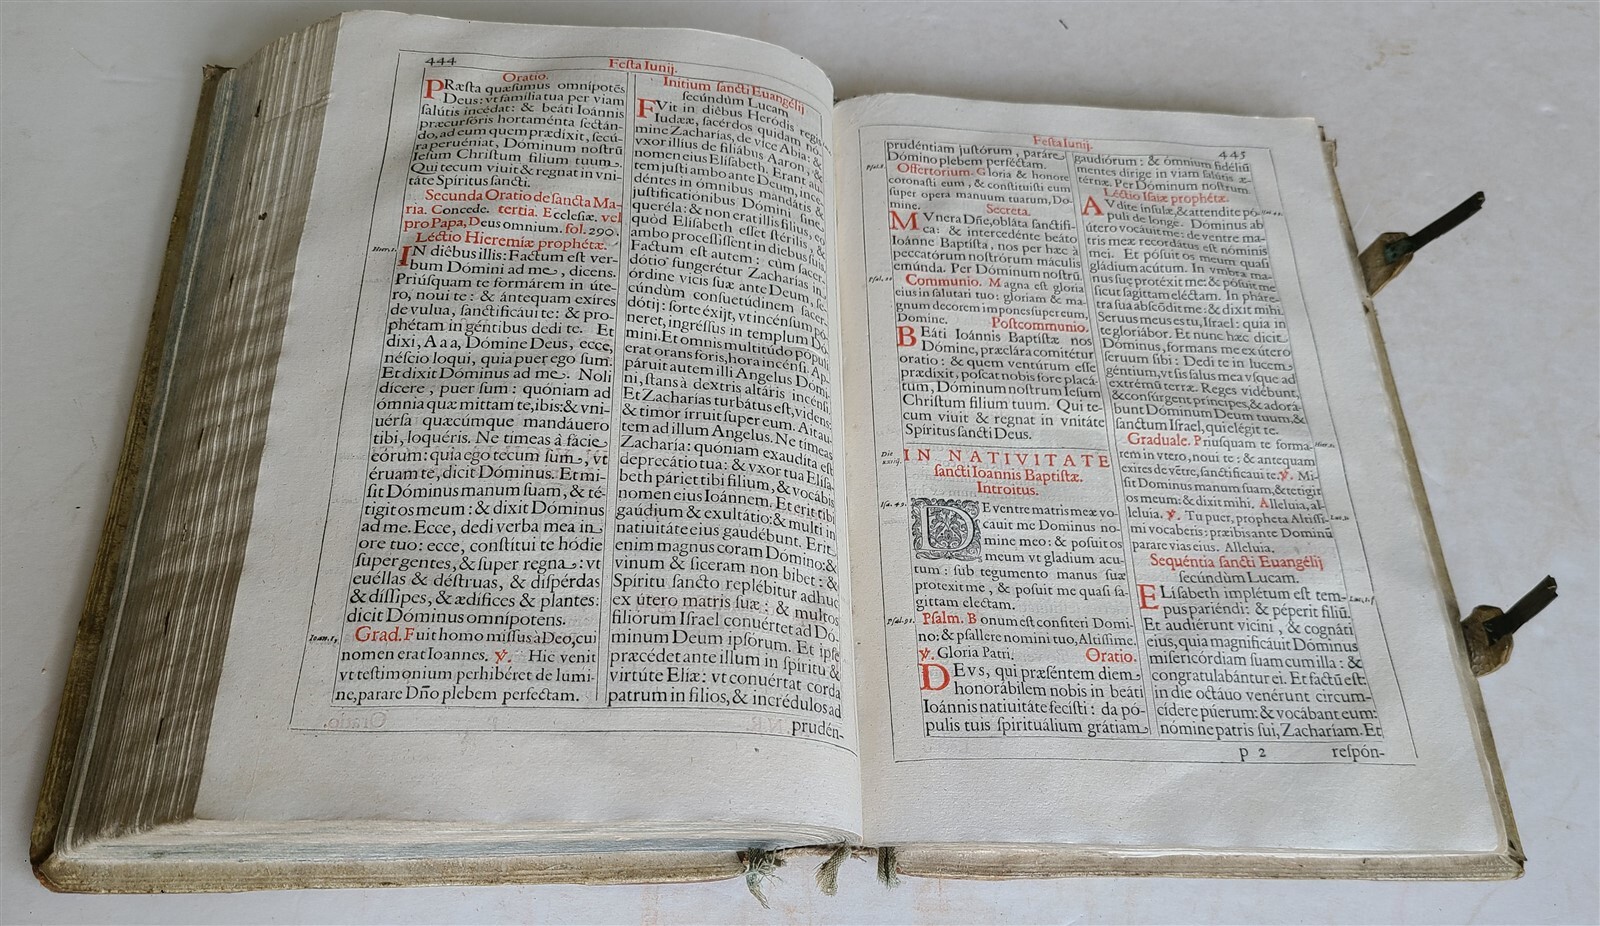 444
Festa Iunij.
Oratio.
PRæsta quæsumus omnipotẽs
Deus: vt familia tua per viam
salútis incédat: & beáti Ioánnis
præcursóris hortaménta sectán-
do, ad eum quem prædíxit, secú-
ra pervéniat, Dóminum nostrũ
Iesum Christum filium tuum.
Qui tecum viuit & regnat in vni-
táte Spíritus sancti.
Secunda Oratio de sancta Ma-
ria. Concede. tertia. Ecclesiæ. vel
pro Papa, Deus omnium. fol. 290.
Léctio Hieremiæ prophétæ.
Hier. 1.
IN diébus illis: Factum est ver-
bum Dómini ad me, dicens.
Priúsquam te formárem in úte-
ro, noui te: & ántequam exíres
de vulua, sanctificáui te: & pro-
phétam in géntibus dedi te. Et
dixi, A a a, Dómine Deus, ecce,
néscio loqui, quia puer ego sum.
Et dixit Dóminus ad me. Noli
dícere, puer sum: quóniam ad
ómnia quæ mittam te, ibis: & vni-
uérsa quæcúmque mandáuero
tibi, loquéris. Ne tímeas à fácie
eórum: quia ego tecum sum, vt
éruam te, dicit Dóminus. Et mi-
sit Dóminus manum suam, & té-
tigit os meum: & dixit Dóminus
ad me. Ecce, dedi verba mea in
ore tuo: ecce, constítui te hódie
super gentes, & super regna: vt
euéllas & déstruas, & dispérdas
& díssipes, & ædífices & plantes:
dicit Dóminus omnípotens.
Ioan. 1.
Grad. Fuit homo missus à Deo, cui
nomen erat Ioannes. ℣. Hic venit
vt testimonium perhibéret de lumi-
ne, parare Dño plebem perfectam.
Initium sancti Euangélij
secúndùm Lucam.
FVit in diébus Heródis regis
Iudææ, sacérdos quidam nó-
mine Zacharías, de vice Abía: &
vxor illius de filiábus Aaron, &
nomen eius Elísabeth. Erant au-
tem justi ambo ante Deum, ince-
déntes in ómnibus mandátis &
justificatiónibus Dómini sine
queréla: & non erat illis filius, eo
quòd Elísabeth esset stérilis, &
ambo processíssent in diébus suis.
Factum est autem: cùm sacer-
dótio fungerétur Zacharías in
órdine vicis suæ ante Deum, se-
cúndùm consuetúdinem sacer-
dótij: sorte éxijt, vt incénsum pó-
neret, ingréssus in templum Dó-
mini. Et omnis multitúdo pópuli
erat orans foris, hora incénsi. Ap-
páruit autem illi Angelus Dómi-
ni, stans à dextris altáris incénsi.
Et Zacharías turbátus est, videns:
& timor írruit super eum. Ait au-
tem ad illum Angelus. Ne tímeas
Zacharía: quóniam exaudíta est
deprecátio tua: & vxor tua Elísa-
beth páriet tibi fílium, & vocábis
nomen eius Ioánnem. Et erit tibi
gáudium & exultátio: & multi in
natiuitáte eius gaudébunt. Erit
enim magnus coram Dómino: &
vinum & síceram non bibet: &
Spíritu sancto replébitur adhuc
ex útero matris suæ: & multos
filiórum Israel conuértet ad Dó-
minum Deum ipsórum. Et ipse
præcédet ante illum in spíritu &
virtúte Elíæ: vt conuértat corda
patrum in fílios, & incrédulos ad
prudén-
Festa Iunij.
445
prudéntiam justórum, paráre
Dómino plebem perféctam.
Psal. 8.
Offertorium. Gloria & honore
coronasti eum, & constituisti eum
super opera manuum tuarum, Do-
mine.
Secreta.
MVnera Dñe, obláta sanctífi-
ca: & intercedénte beáto
Ioánne Baptísta, nos per hæc à
peccatórum nostrórum máculis
emúnda. Per Dóminum nostrũ.
Psal. 20.
Communio. Magna est gloria
eius in salutari tuo: gloriam & ma-
gnum decorem impones super eum,
Domine.
Postcommunio.
BEáti Ioánnis Baptístæ nos
Dómine, præclára comitétur
orátio: & quem ventúrum esse
prædíxit, poscat nobis fore placá-
tum, Dóminum nostrum Iesum
Christum fílium tuum. Qui te-
cum viuit & regnat in vnitáte
Spíritus sancti Deus.
Die
xxiiij.
IN NATIVITATE
sancti Ioannis Baptistæ.
Introitus.
Isa. 49.
DE ventre matris meæ vo-
cauit me Dominus no-
mine meo: & posuit os
meum vt gladium acu-
tum: sub tegumento manus suæ
protexit me, & posuit me quasi sa-
gittam electam.
Psal. 91.
Psalm. Bonum est confiteri Domi-
no: & psallere nomini tuo, Altissime.
℣. Gloria Patri.
Oratio.
DEus, qui præséntem diem
honorábilem nobis in beáti
Ioánnis natiuitáte fecísti: da pó-
pulis tuis spirituálium grátiam
gaudiórum: & ómnium fidéliũ
mentes dírige in viam salútis æ-
térnæ. Per Dóminum nostrum.
Léctio Isaíæ prophétæ.
AVdíte ínsulæ, & atténdite pó-
puli de longè. Dóminus ab
útero vocáuit me: de ventre ma-
tris meæ recordátus est nóminis
mei. Et pósuit os meum quasi
gládium acútum. In vmbra ma-
nus suæ protéxit me: & pósuit me
sicut sagíttam eléctam. In pháre-
tra sua abscóndit me: & dixit mihi.
Seruus meus es tu, Israel: quia in
te gloriábor. Et nunc hæc dicit
Dóminus, formans me ex útero
seruum sibi: Dedi te in lucem
géntium, vt sis salus mea vsque ad
extrémũ terræ. Reges vidébunt,
& consúrgent príncipes, & adorá-
bunt Dóminum Deum tuum, &
sanctum Israel, qui elégit te.
Graduale. Priusquam te forma-
Hier. 1.
rem in vtero, noui te: & antequam
exires de vẽtre, sanctificaui te. ℣. Mi-
sit Dominus manum suam, & tetigit
os meum: & dixit mihi. Alleluia, al-
leluia. ℣. Tu puer, propheta Altissi-
Luc. 1.
mi vocaberis: præibis ante Dominũ
parare vias eius. Alleluia.
Sequéntia sancti Euangélij
secúndùm Lucam.
ELísabeth implétum est tem-
Luc. 1.
pus pariéndi: & péperit fíliũ.
Et audiérunt vicíni, & cognáti
eius, quia magnificáuit Dóminus
misericórdiam suam cum illa: &
congratulabántur ei. Et factũ est:
in die octáuo venérunt circum-
cídere púerum: & vocábant eum:
nómine patris sui, Zacharíam. Et
p 2
respón-